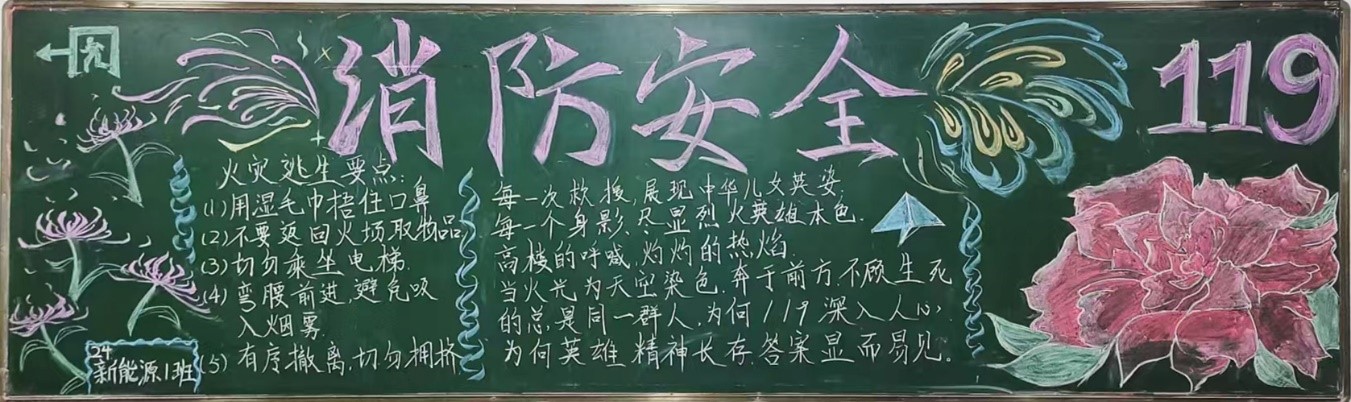 消防安全
119
火灾逃生要点:
(1)用湿毛巾捂住口鼻
(2)不要返回火场取物品
(3)切勿乘坐电梯.
(4)弯腰前进,避免吸
入烟雾.
(5)有序撤离,切勿拥挤
每一次救援,展现中华儿女英姿;
每一个身影,尽显烈火英雄本色.
高楼的呼喊,灼灼的热焰
当火光为天空染色,奔于前方,不顾生死
的总是同一群人,为何119深入人心,
为何英雄精神长存.答案显而易见.
24
新能源1班